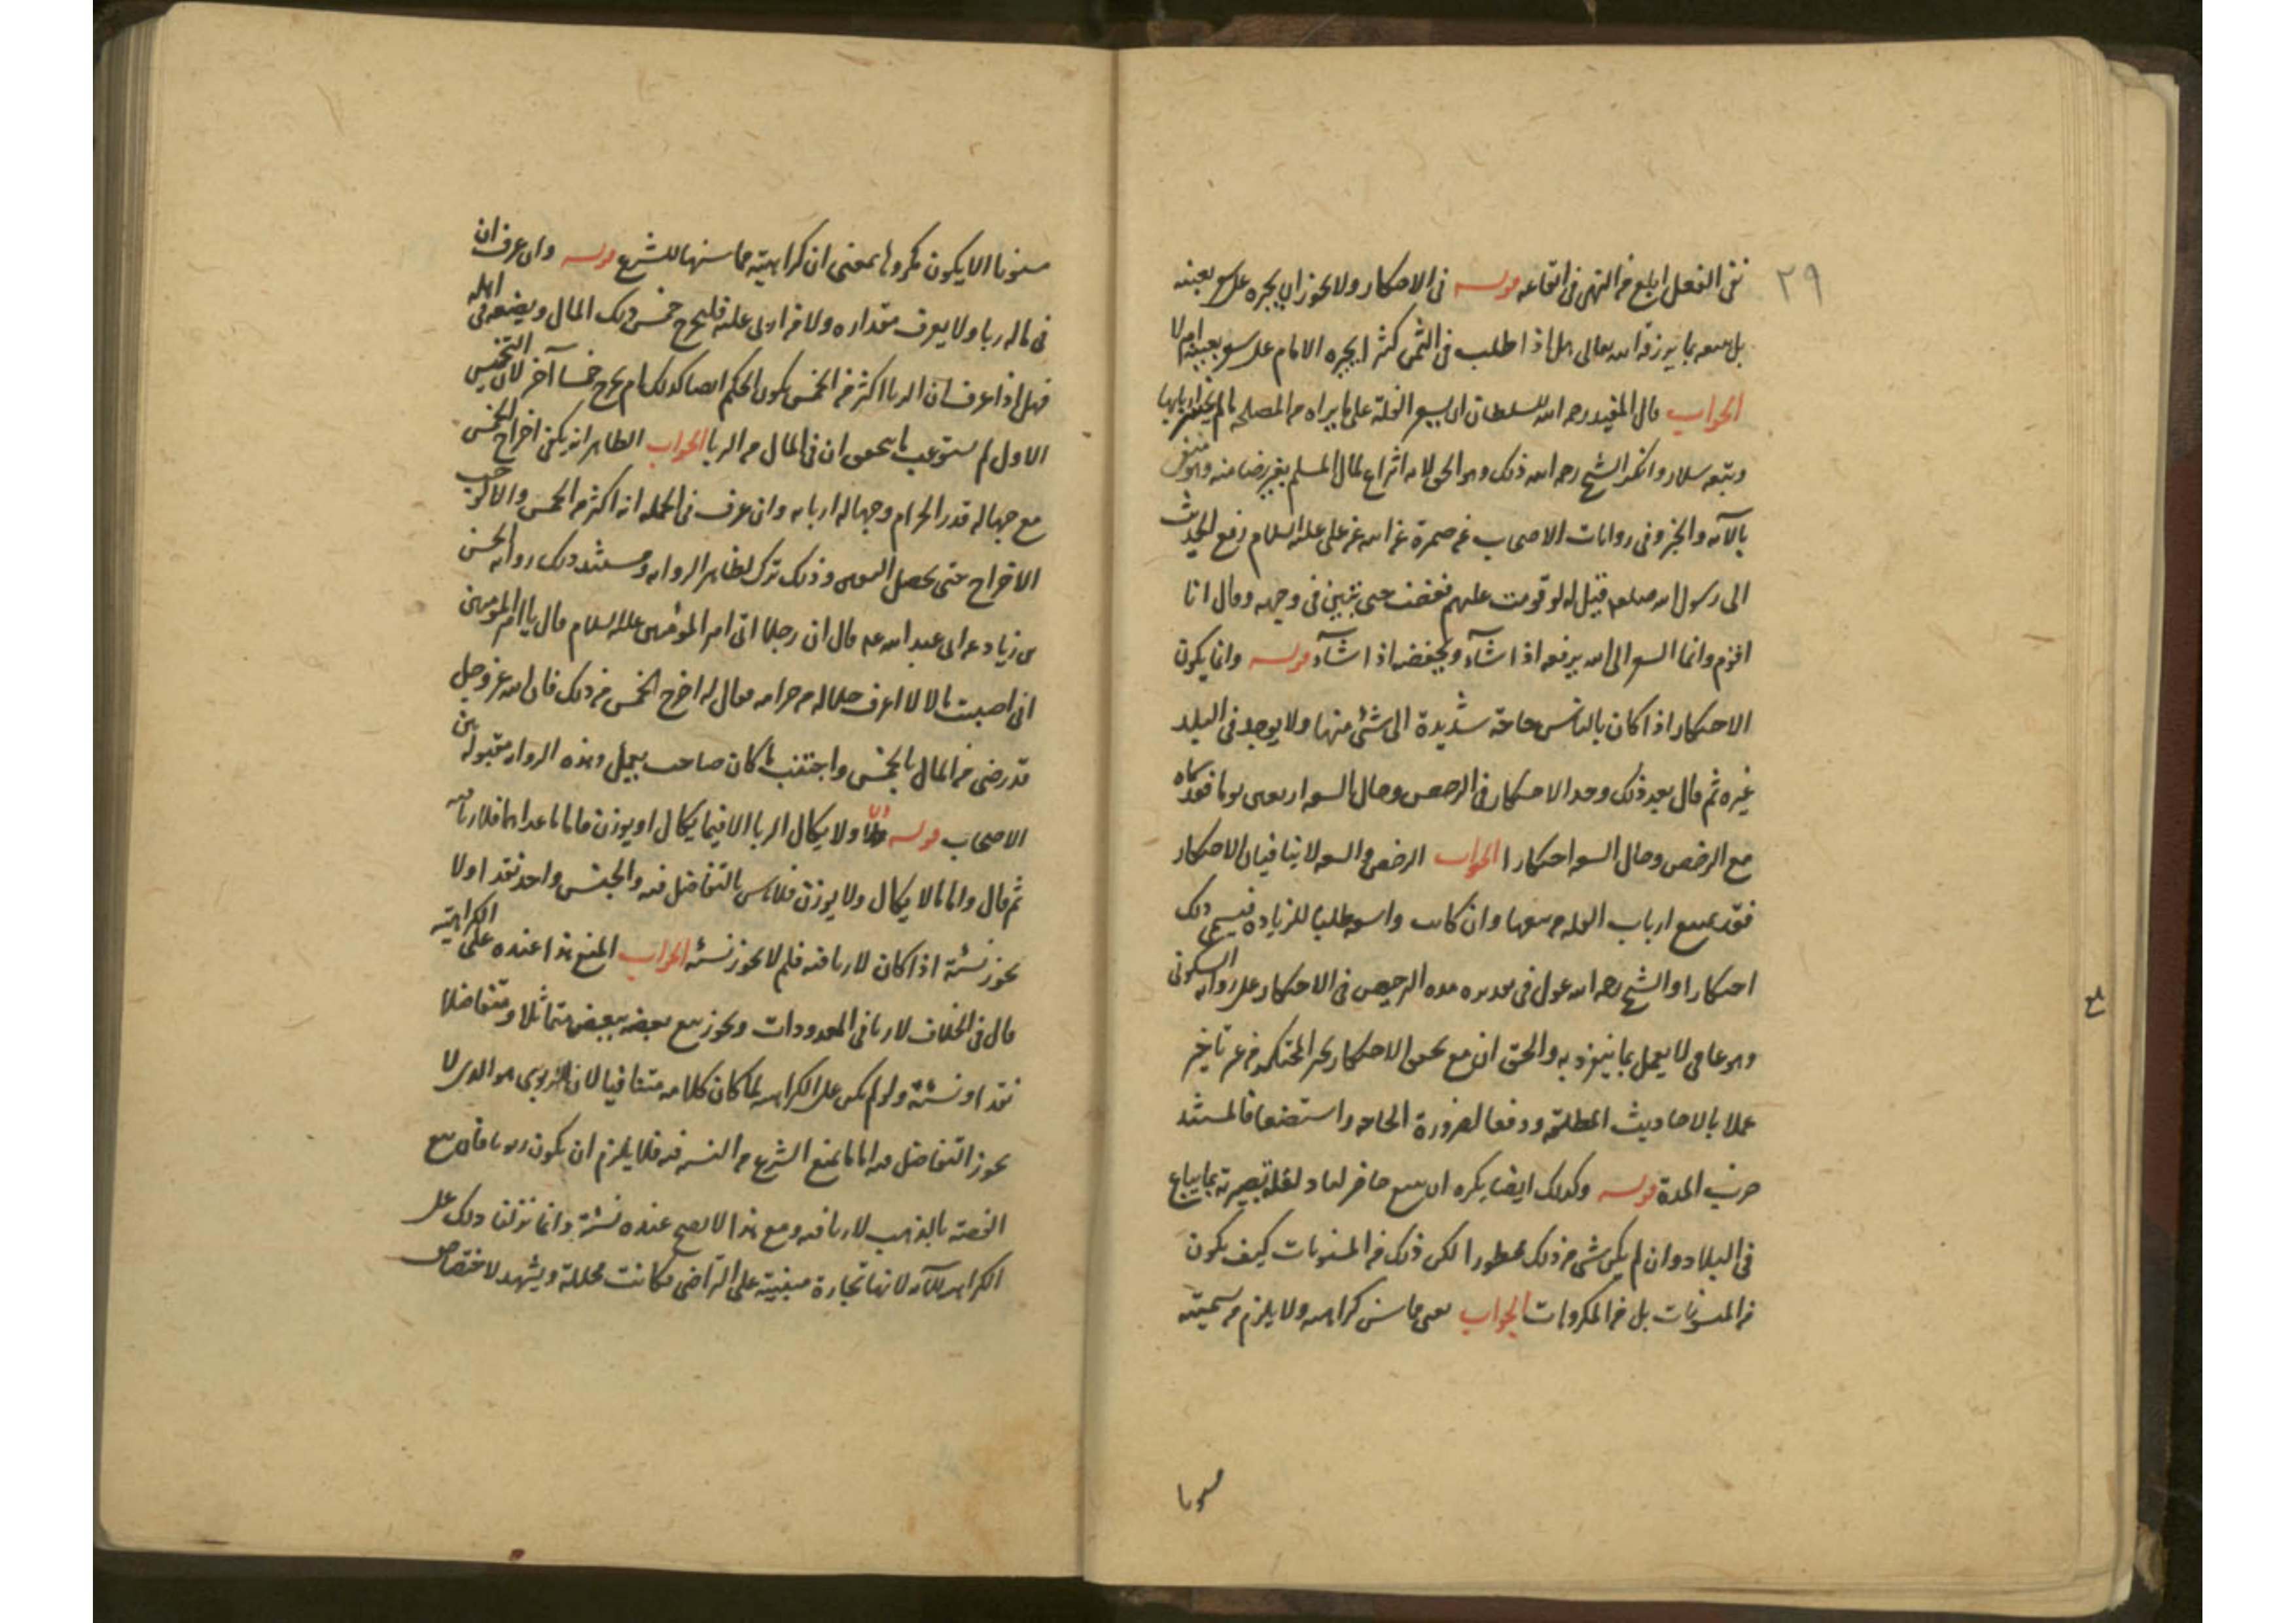 ٢٩
نفى الفعل ابلغ من النهى فى ايقاعه قوله فى الاحتكار ولا يجوز ان يجبره على سعر بعينه
بل يبيعه بما يرزقه الله تعالى هل اذا طلب فى الثمن كثيرا يجبره الامام على سعر بعينه ام لا
الجواب قال المفيد رحمه الله للسلطان ان يسعر الغلة على ما يراه من المصلحة
وتبعه سلار وانكر الشيخ رحمه الله ذلك وهو الحق لانه انتزاع لمال المسلم بغير رضا منه وهو منفى
بالآية والخبر وفى روايات الاصحاب عن ضمرة عن ابيه عن على عليه السلام رفع الحديث
الى رسول الله صلعم قيل له لو قومت عليهم فغضب حتى تبين فى وجهه وقال انا
اقوم وانما السعر الى الله يرفعه اذا شآء ويخفضه اذا شآء قوله وانما يكون
الاحتكار اذا كان بالناس حاجة شديدة الى شئ منها ولا يوجد فى البلد
غيره ثم قال بعد ذلك وحد الاحتكار فى الرخص وحال السعة اربعين يوما فقد سماه
مع الرخص وحال السعة احتكارا الجواب الرخص والسعة لا ينافيان الاحتكار
فقد يمنع ارباب الغلة من بيعها وان كانت واسعة طلبا للزيادة فيسمى ذلك
احتكارا والشيخ رحمه الله عول فى تقديره مدة الترخيص فى الاحتكار على رواية السكونى
وهو عامى لا يعمل بما ينفرد به والحق ان مع تحقق الاحتكار يجبر المحتكر من غير تاخير
عملا بالاحاديث المطلقة ودفعا لضرورة الحاجة واستضعافا لمستند
ضرب المدة قوله وكذلك ايضا يكره ان يبيع حاضر لباد لقلة بصيرته بما يباع
فى البلاد وان لم يكن شئ من ذلك محظورا لكن ذلك من المسنونات كيف يكون
من المسنونات بل من المكروهات الجواب يعنى مما سن كراهيته ولا يلزم من تسميته
مسنونا
مسنونا الا يكون مكروها بمعنى ان كراهيته مما سنها الشرع قوله وان عرف ان
فى ماله ربا ولا يعرف مقداره ولا من اربى عليه فليخرج خمس ذلك المال ويضعه فى اهله
فهل اذا عرف ان الربا اكثر من الخمس يكون الحكم ايضا كذلك ام يخرج خمسا آخر لان التخميس
الاول لم يستوعب ما يتحقق ان فى المال من الربا الجواب الظاهر انه يكفى اخراج الخمس
مع جهالة قدر الحرام وجهالة اربابه وان عرف فى الجملة انه اكثر من الخمس
الاخراج حتى يحصل اليقين وذلك ترك لظاهر الرواية ومستند ذلك رواية الحسن
بن زياد عن ابى عبد الله عم قال ان رجلا اتى امير المؤمنين عليه السلام قال يا امير المؤمنين
انى اصبت مالا لا اعرف حلاله من حرامه فقال له اخرج الخمس من ذلك فان الله عز وجل
قد رضى من المال بالخمس واجتنب ما كان صاحبه يعمل وهذه الرواية مقبولة بين
الاصحاب قوله ولا يكال الربا الا فيما يكال او يوزن فاما ما عداهما فلا ربا فيه
ثم قال واما ما لا يكال ولا يوزن فلا باس بالتفاضل فيه والجنس واحد نقدا ولا
يجوز نسئة اذا كان لا ربا فيه فلم لا يجوز نسئة الجواب المنع هذا عنده على الكراهية
قال فى الخلاف لا ربا فى المعدودات ويجوز بيع بعضه ببعض متماثلا ومتفاضلا
نقدا ونسئة ولو لم يكن على الكراهية لما كان كلامه متنافيا لان الربوى هو الذى لا
يجوز التفاضل فيه اما ما يمنع الشرع من النسئة فيه فلا يلزم ان يكون ربويا فان بيع
الفضة بالذهب لا ربا فيه ومع هذا لا يصح عنده نسئة وانما نزلنا ذلك على
الكراهية للآية لانها تجارة مبنية على التراضى فكانت محللة ويشهد لاختصاص